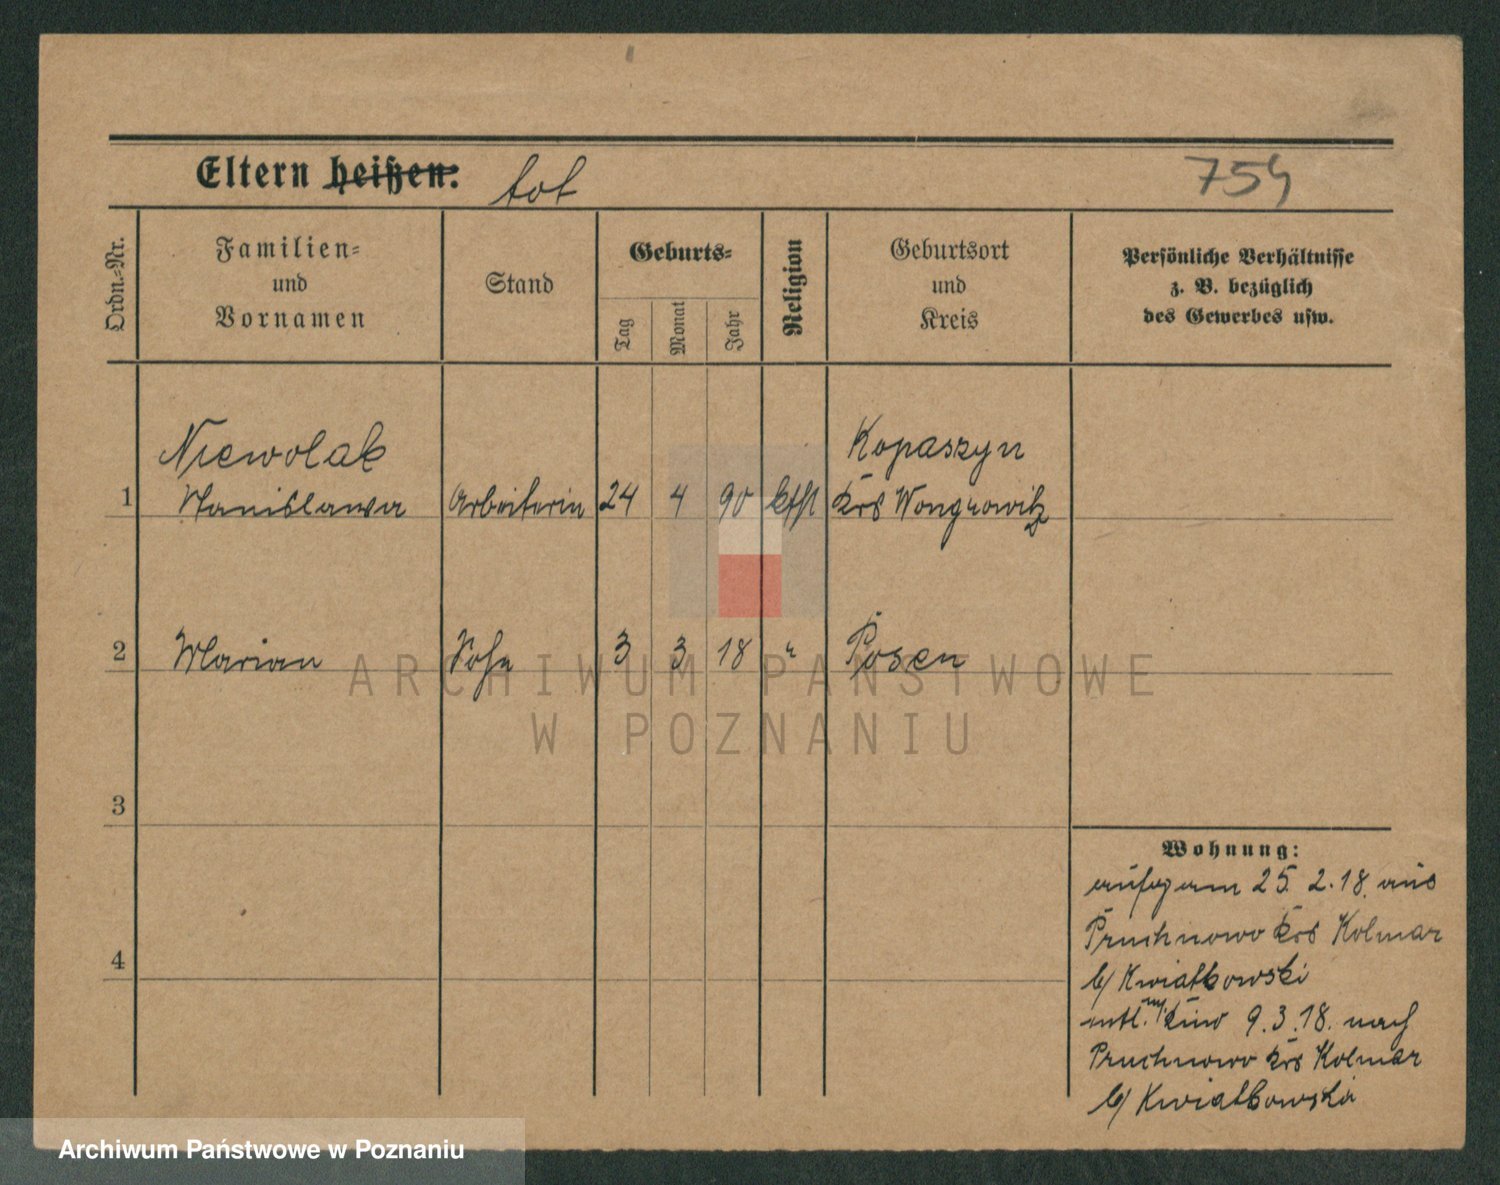 Eltern heißen: tot
754
Ordn.-Nr.
Familien-
und
Vornamen
Stand
Geburts-
Tag
Monat
Jahr
Religion
Geburtsort
und
Kreis
Persönliche Verhältnisse
z. B. bezüglich
des Gewerbes usw.
Niewolak Kopaszyn
1 Stanislawa Arbeiterin 24 4 90 kth Krs Wongrowitz
2 Marian Sohn 3 3 18 " Posen
ARCHIWUM PAŃSTWOWE
W POZNANIU
3
4
Wohnung:
am 25. 2. 18. aus
Pruchnowo Krs Kolmar
b/ Kwiatkowski
entl. m/ Kind 9. 3. 18. nach
Pruchnowo Krs Kolmar
b/ Kwiatkowski
Archiwum Państwowe w Poznaniu